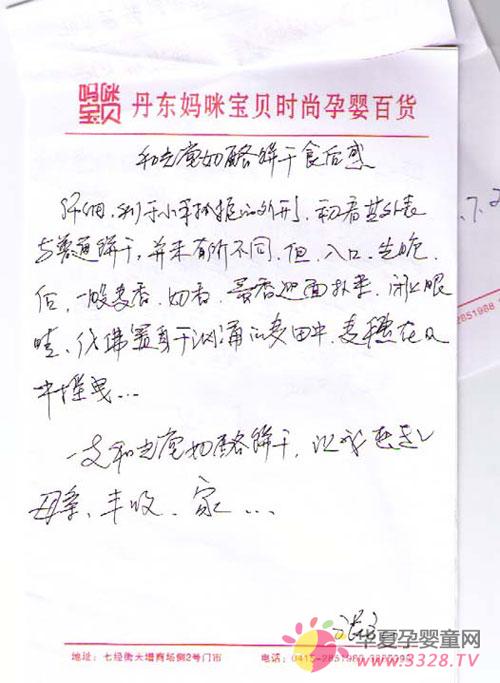 妈咪宝贝 丹东妈咪宝贝时尚孕婴百货
和光堂奶酪饼干食后感
纤细、利于小手抓握的外形，初看其外表
与普通饼干，并未有所不同，但，入口，生脆
后，一股麦香、奶香、蛋香迎面扑来，闭上眼
睛，仿佛置身于汹涌的麦田中，麦穗在风
中摇曳…
一支和光堂奶酪饼干，让我想起
母亲、丰收、家…
7.2
2851988
地址：七经街大增商场侧2号门市 电话：0415-2851988
华夏孕婴童网
www.3328.TV